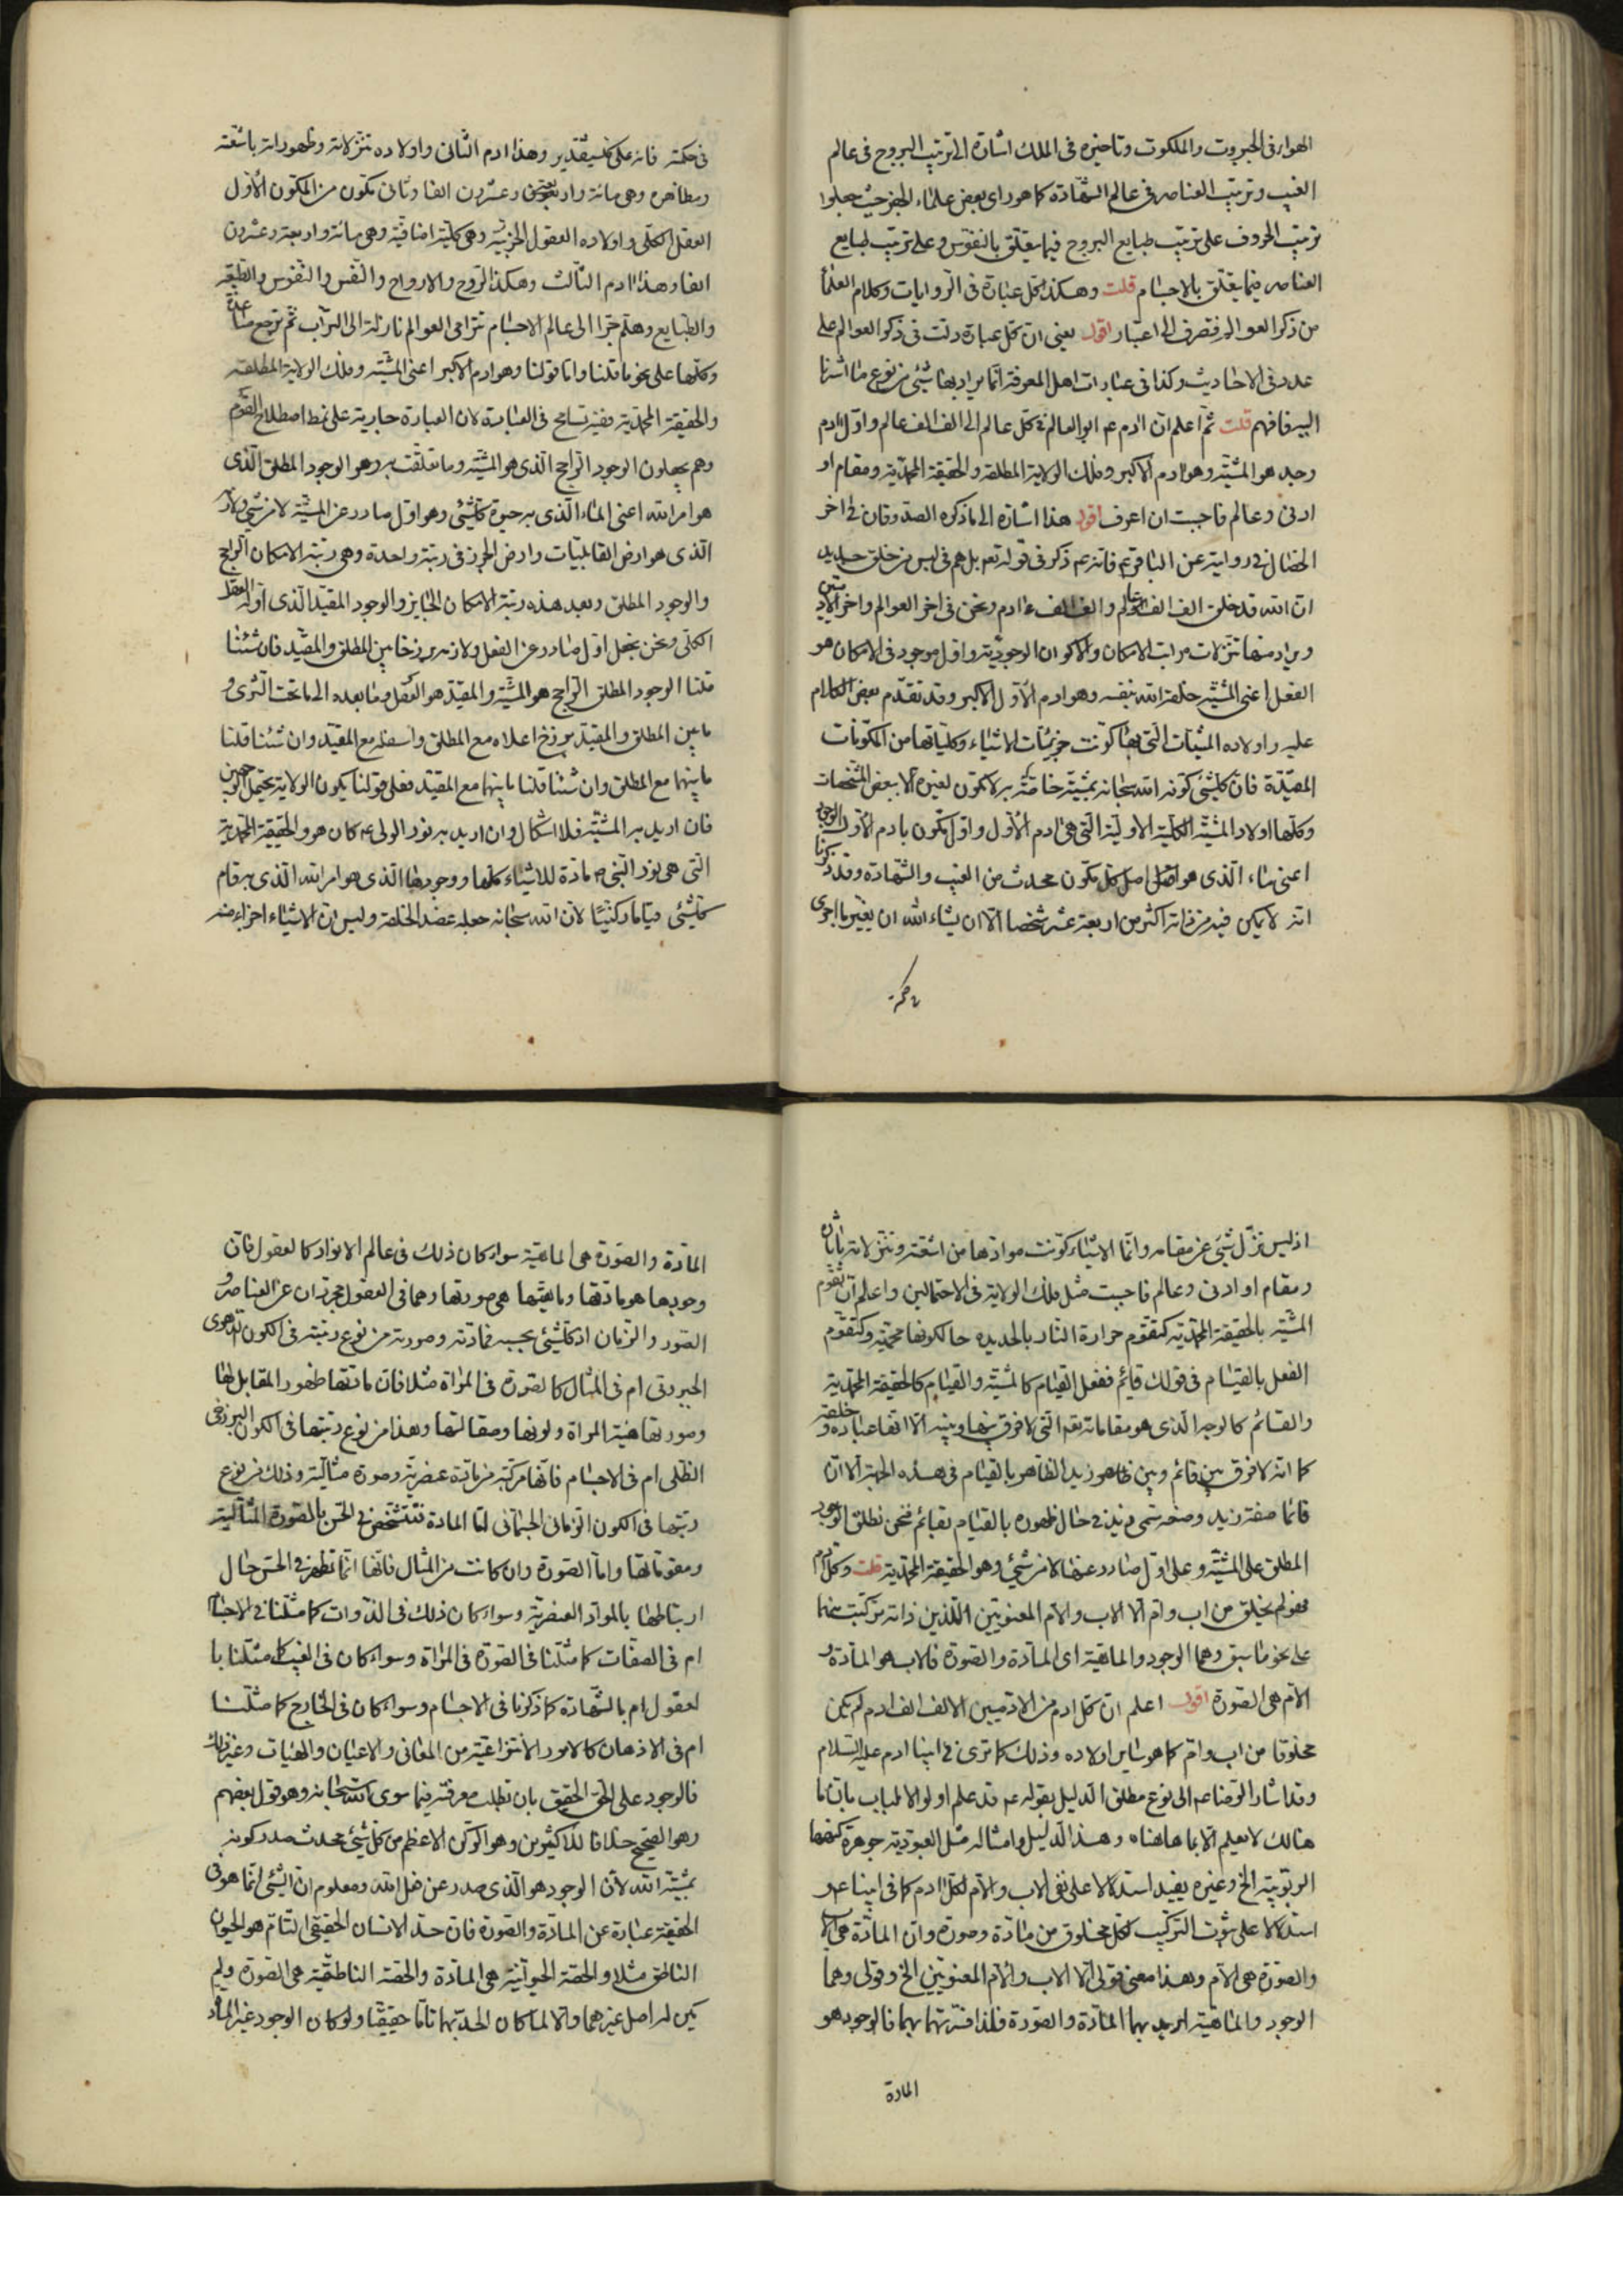 الهواء فى الجبروت والملكوت وتاخيره فى الملك اشارة الى ترتيب البروج فى عالم
الغيب وترتيب العناصر فى عالم الشهادة كما هو راى بعض علماء الجفر حيث جعلوا
ترتيب الحروف على ترتيب طبايع البروج فيما يتعلق بالنفوس وعلى ترتيب طبايع
العناصر فيما يتعلق بالاجسام قلت وهكذا كل عبارة فى الروايات وكلام العلماء
من ذكر العوالم فتصرف الى اعتبار اقول يعنى ان كل عبارة دلت فى ذكر العوالم على
عدد فى الاحاديث وكذا فى عبارات اهل المعرفة انما يراد بها شيئ من نوع ما اشرنا
اليه فافهم قلت ثم اعلم ان ادم ع ابو العالم فى كل عالم الى الف الف عالم واول ادم
وجد هو المشية وهو ادم الاكبر وفلك الولاية المطلقة والحقيقة المحمدية ومقام او
ادنى وعالم فاحببت ان اعرف اقول هذا اشارة الى ما ذكره الصدوق فى اخر
الخصال فى رواية عن الباقر ع فانه ع ذكر فى قوله تع بل هم فى لبس من خلق جديد
ان الله قد خلق الف الف عالم والف الف ادم ونحن فى اخر العوالم واخر الادميين
ويراد منها تنزلات مراتب الامكان والاكوان الوجودية واول موجود فى الامكان هو
الفعل اعنى المشية خلقه الله بنفسه وهو ادم الاول الاكبر وقد تقدم بعض الكلام
عليه واولاده المشيات التى بها كونت جزئيات الاشياء وكلياتها من المكونات
المقيدة فان كل شيئ كونه الله سبحانه بمشية خاصة به لا تكون لغيره الا ببعض المشخصات
وكلها اولاد المشية الكلية الاولية التى هى ادم الاول واول تكون بادم الاول الوجود
اعنى ماء الذى هو اصل كل مكون محدث من الغيب والشهادة وقد ذكرنا
انه لا يكن فيه من ذاته اكثر من اربعة عشر شخصا الا ان يشاء الله ان يغير ما اجرى
فى حكمته
فى حكمته فانه على كل شيئ قدير وهذا ادم الثانى واولاده تنزلاته وظهوراته باشعته
ومظاهره وهى مائة واربعة وعشرون الفا وثانى مكون من المكون الاول
العقل الكلى واولاده العقول الجزئية وهى كلية اضافية وهى مائة واربعة وعشرون
الفا وهذا ادم الثالث وهكذا الروح والارواح والنفس والنفوس والطبيعة
والطبايع وهلم جرا الى عالم الاجسام تترامى العوالم نازلة الى التراب ثم ترجع صاعدة
وكلها على نحو ما قلنا واما قولنا وهو ادم الاكبر اعنى المشية وفلك الولاية المطلقة
والحقيقة المحمدية ففيه تسامح فى العبارة لان العبارة جارية على نمط اصطلاح القوم
وهم يجعلون الوجود الراجح الذى هو المشية وما تعلقت به وهو الوجود المطلق الذى
هو امر الله اعنى الماء الذى به حيوة كل شيئ وهو اول صادر عن المشية لا من شيئ والارض
الذى هو ارض القابليات وارض الجرز فى رتبة واحدة وهى رتبة الامكان الراجح
والوجود المطلق وبعد هذه رتبة الامكان الجايز والوجود المقيد الذى اوله العقل
الكلى ونحن نجعل اول صادر عن الفعل ولازمه برزخا بين المطلق والمقيد فان شئنا
قلنا الوجود المطلق الراجح هو المشية والمقيد هو العقل وما بعده الى ما تحت الثرى و
ما بين المطلق والمقيد برزخ اعلاه مع المطلق واسفله مع المقيد وان شئنا قلنا
ما بينهما مع المطلق وان شئنا قلنا ما بينهما مع المقيد فعلى قولنا يكون الولاية يحتمل الوجهين
فان اريد به المشية فلا اشكال وان اريد به نور الولى ع كان هو والحقيقة المحمدية
التى هى نور النبى ص مادة للاشياء كلها ووجودها الذى هو امر الله الذى به قام
كل شيئ قياما ركنيا لان الله سبحانه جعله عضدا لخلقه وليس ان الاشياء اجزاء منه
اذ ليس تنزل شيئ عن مقامه وانما الاشياء كونت موادها من اشعته وتنزلاته باثاره
ومقام او ادنى وعالم فاحببت مثل فلك الولاية فى الاحتمالين واعلم ان تقوم
المشية بالحقيقة المحمدية كتقوم حرارة النار بالحديده حال كونها محمية وكتقوم
الفعل بالقيام فى قولك قائم ففعل القيام كالمشية والقيام كالحقيقة المحمدية
والقائم كالوجه الذى هو مقاماته تع التى لا فرق بينها وبينه الا انها عباده وخلقه
كما انه لا فرق بين قائم وبين زيد الظاهر بالقيام فى هذه الجهة الا ان
قائما صفة زيد وصفته سمى زيد فى حال ظهوره بالقيام بقائم فنحن نطلق الوجود
المطلق على المشية وعلى اول صادر عنها لا من شيئ وهو الحقيقة المحمدية قلت وكل ادم
فهو لم يخلق من اب وام الا الاب والام المعنويين اللذين ذاته تركبت منهما
على نحو ما سبق وهما الوجود والماهية اى المادة والصورة فالاب هو المادة و
الام هى الصورة اقول اعلم ان كل ادم من الادميين الالف الف ادم لم يكن
مخلوقا من اب وام كما هو شان اولاده وذلك كما ترى فى ابينا ادم عليه السلام
وقد اشار الرضا ع الى نوع مطلق الدليل بقوله ع قد علم اولوا الالباب بان ما
هنالك لا يعلم الا بما هاهنا وهذا الدليل وامثاله مثل العبودية جوهرة كنهها
الربوبية الخ وغيره يفيد استدلالا على نفى الاب والام لكل ادم كما فى ابينا ع و
استدلالا على ثبوت التركيب لكل مخلوق من مادة وصورة وان المادة هى الاب
والصورة هى الام وهذا معنى قولى الا الاب والام المعنويين الخ وقولى وهما
الوجود والماهية اريد بهما المادة والصورة فلذا فسرتهما بهما فالوجود هو
المادة
المادة والصورة هى الماهية سواء كان ذلك فى عالم الانوار كالعقول فان
وجودها هو مادتها وماهيتها هى صورتها وهما فى العقول مجردان عن العناصر و
الصور والزمان اذ كل شيئ بحسبه فمادته وصورته من نوع رتبته فى الكون الدهرى
الجبروتى ام فى المثال كالصورة فى المراة مثلا فان مادتها ظهور المقابل لها
وصورتها هيئة المراة ولونها وصقالتها وهذا من نوع رتبتها فى الكون البرزخى
الظلى ام فى الاجسام فانها مركبة من مادة عنصرية وصورة مثالية وذلك من نوع
رتبتها فى الكون الزمانى الجسمانى اما المادة فتتشخص فى الحس بالصورة المثالية
ومقوماتها واما الصورة وان كانت من المثال فانها انما تظهر فى الحس حال
ارتباطها بالمواد العنصرية وسواء كان ذلك فى الذوات كما مثلنا فى الاجسام
ام فى الصفات كما مثلنا فى الصورة فى المراة وسواء كان فى الغيب كما مثلنا با
لعقول ام بالشهادة كما ذكرنا فى الاجسام وسواء كان فى الخارج كما مثلنا
ام فى الاذهان كالامور الانتزاعية من المعانى والاعيان والهيات وغير ذلك
فالوجود على الحق الحقيق بان تطلب معرفته فيما سوى الله سبحانه وهو قول بعضهم
وهو الصحيح خلافا للاكثرين وهو الركن الاعظم من كل شيئ محدث صدر كونه
بمشية الله لان الوجود هو الذى صدر عن فعل الله ومعلوم ان الشيئ انما هو فى
الحقيقة عبارة عن المادة والصورة فان حد الانسان الحقيقى التام هو الحيوان
الناطق مثلا والحصة الحيوانية هى المادة والحصة الناطقية هى الصورة ولم
يكن له اصل غيرهما والا لما كان الحد بهما تاما حقيقيا ولو كان الوجود غير المادة